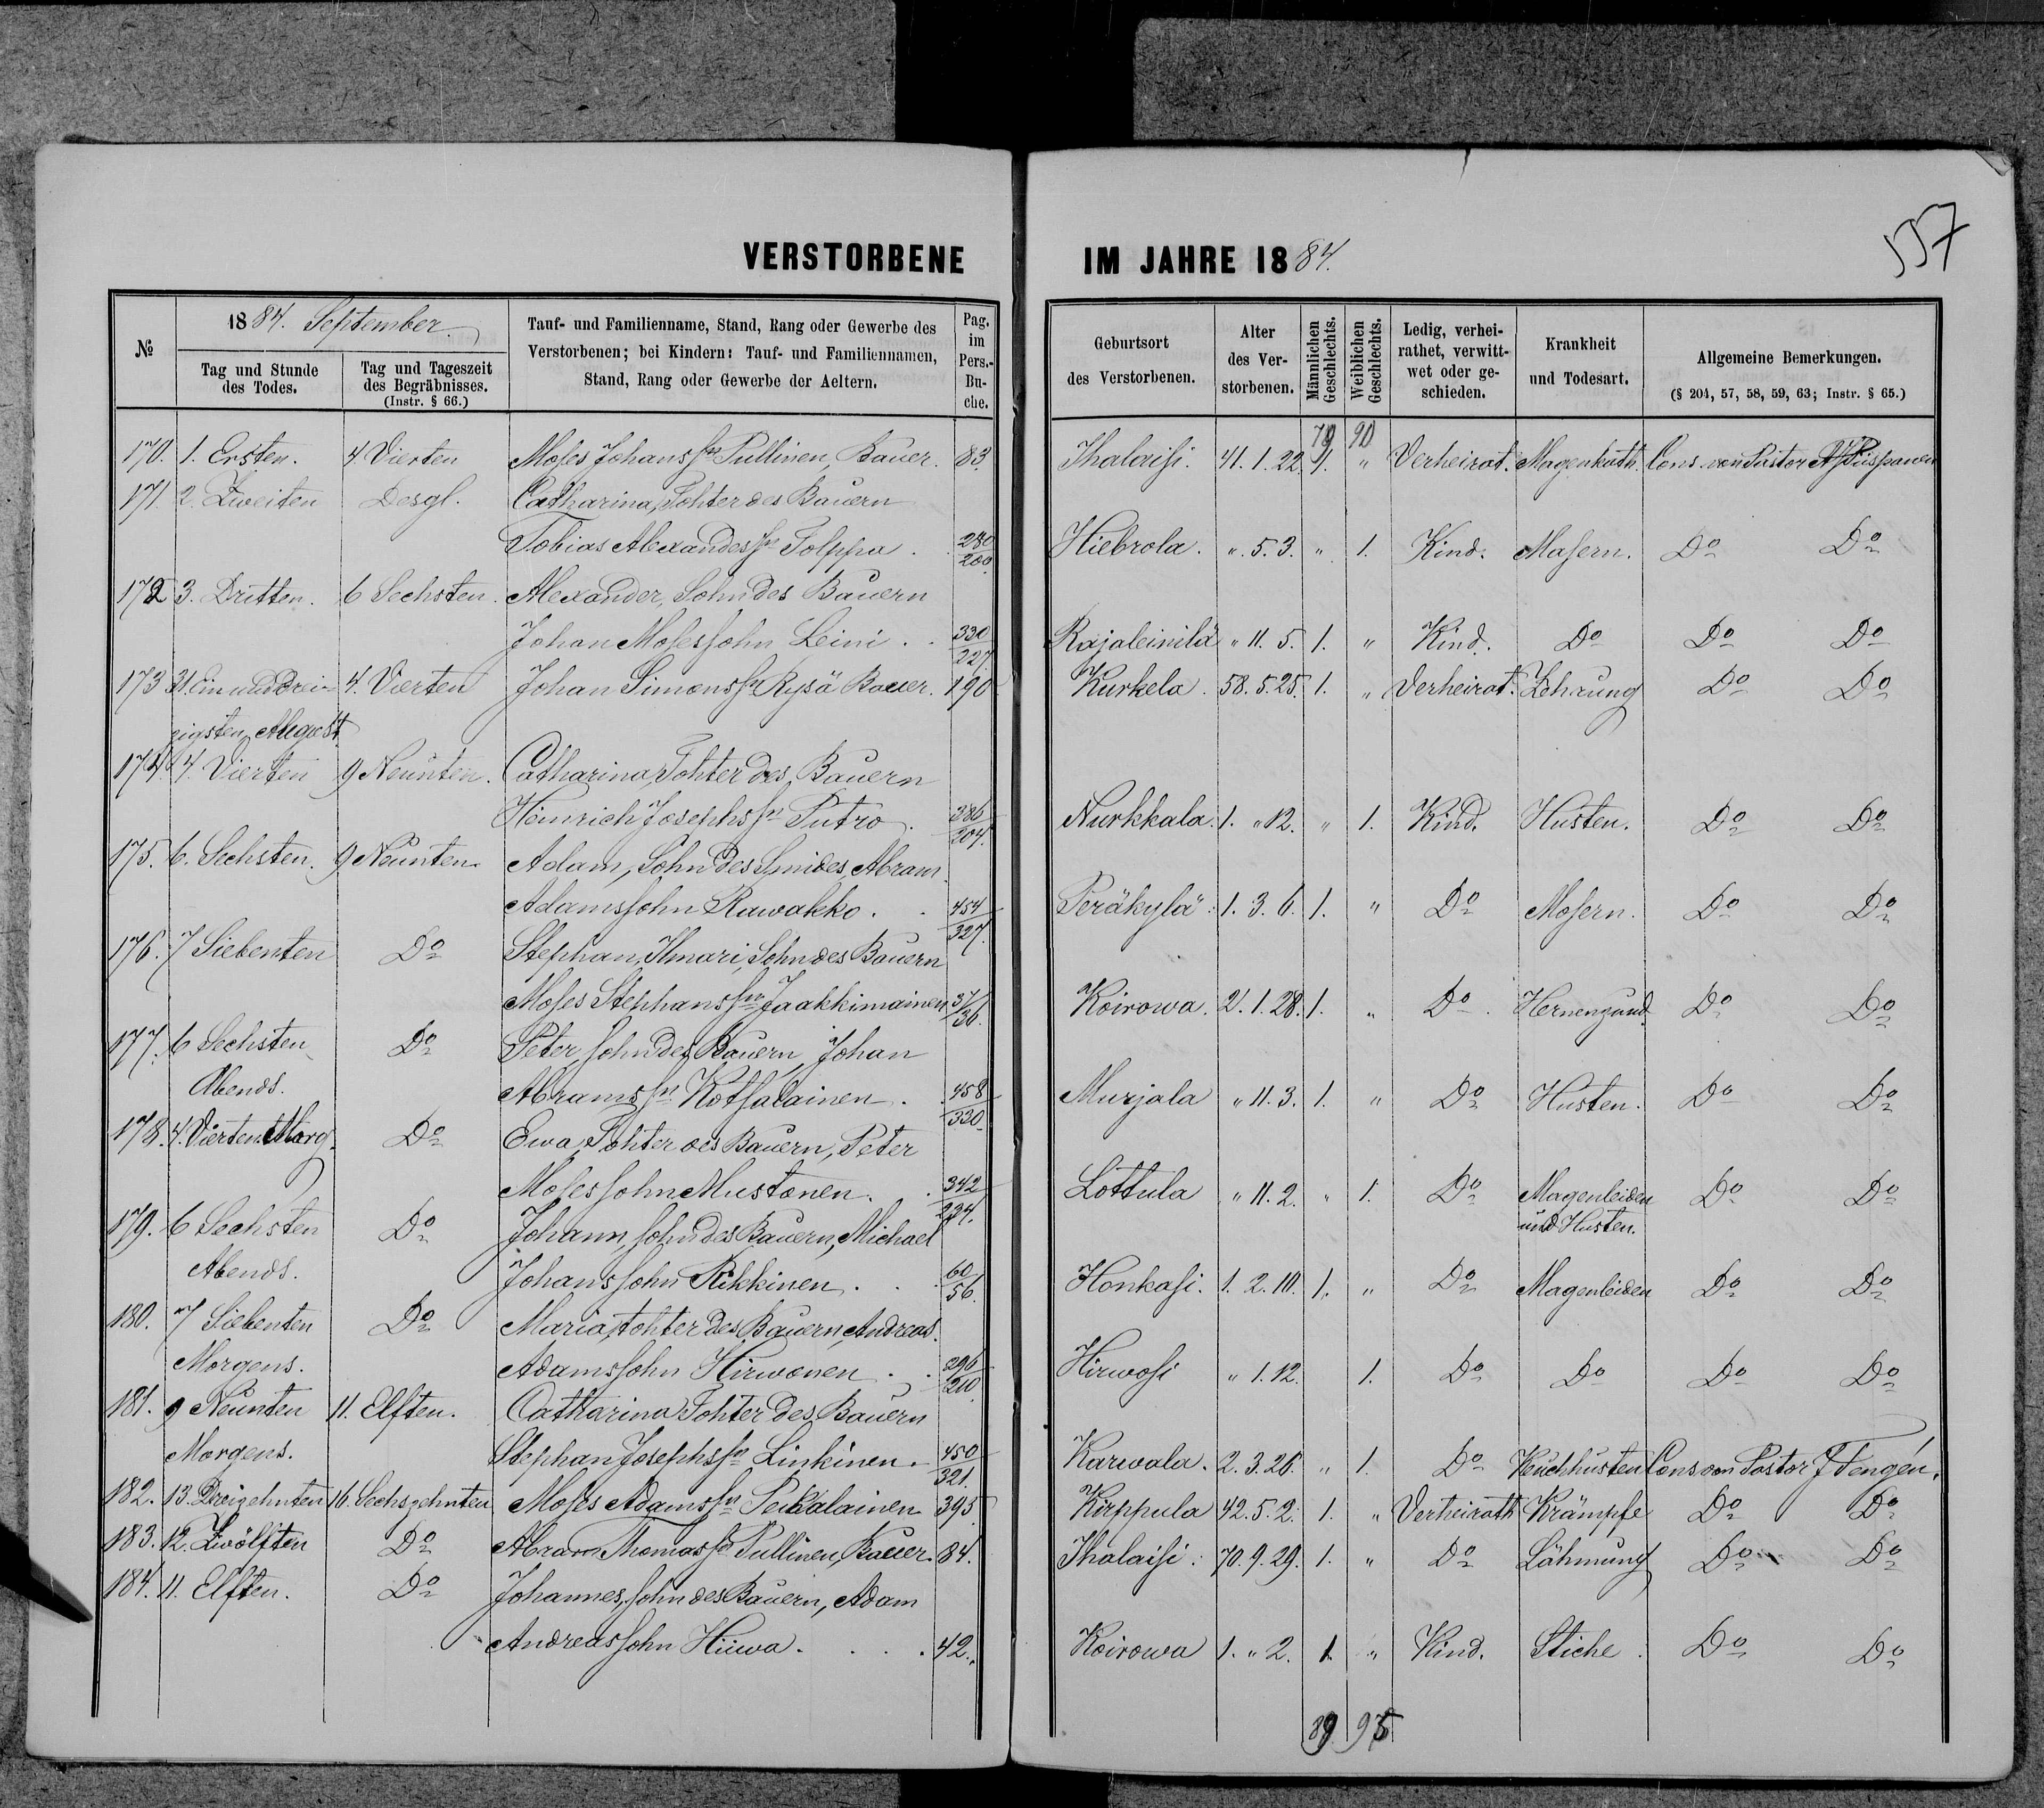 VERSTORBENE IM JAHRE 1884.
557
№
1884. September
Tag und Stunde des Todes.
Tag und Tageszeit des Begräbnisses. (Instr. § 66.)
Tauf- und Familienname, Stand, Rang oder Gewerbe des Verstorbenen; bei Kindern: Tauf- und Familiennamen, Stand, Rang oder Gewerbe der Aeltern.
Pag. im Pers.-Buche.
Geburtsort des Verstorbenen.
Alter des Verstorbenen.
Männlichen Geschlechts.
Weiblichen Geschlechts.
Ledig, verheirathet, verwittwet oder geschieden.
Krankheit und Todesart.
Allgemeine Bemerkungen.
(§ 204, 57, 58, 59, 63; Instr. § 65.)
79 90
170. 1. Ersten. 4 Vierten Moses Johanssn Pullinen, Bauer. 83 Ihalaisi. 41. 1. 22. 1. " Verheirat. Magenkath. Cons. von Pastor Piispanen
171. 2. Zweiten Desgl. Catharina, Tohter des Bauern
Tobias Alexanderssn Tolppa. 280/200. Hiebrola. ". 5. 3. " 1. Kind. Masern. Do Do
172 3. Dritten. 6 Sechsten. Alexander, Sohn des Bauern
Johan Mosessohn Leini. 330/227. Rajaleinilä " 11. 5. 1. " Kind. Do Do Do
173 31. Ein und Drei- 4. Vierten Johan Simonssn Rysä Bauer. 190 Kurkela. 58. 5. 25. 1. " Verheirat. Zehrung Do Do
zigsten August.
174. 4. Vierten 9 Neunten. Catharina, Tohter des Bauern
Heinrich Josephssn Putro. 386/204. Nurkkala. 1. " 12. " 1. Kind. Husten. Do Do
175. 6. Sechsten. 9 Neunten. Adam, Sohn des Smides, Abram
Adamssohn Rawakko. 454/327. Peräkylä. 1. 3. 6. 1. " Do Masern. Do Do
176. 7 Siebenten Do Stephan Ilmari, Sohn des Bauern
Moses Stephanssn Jaakkimainen 37/36. Koirowa. 2. 1. 28. 1. " Do. Hernenzund. Do Do
177. 6 Sechsten Do Peter, sohn des Bauern, Johan
Abends. Abramssn Kotsalainen. 458/330. Murjala " 11. 3. 1. " Do Husten. Do Do
178. 4. Vierten Morg. Do Ewa, Tohter des Bauern, Peter
Mosessohn Mustonen. 342/234. Lottula " 11. 2. " 1. Do Magenleiden Do Do
und Husten.
179. 6 Sechsten Do Johann, sohn des Bauern, Michael
Abends. Johanssohn Rikkinen. 60/56. Honkasi. 1. 2. 10. 1. " Do Magenleiden Do Do
180. 7 Siebenten Do Maria, tohter des Bauern, Andreas
Morgens. Adamssohn Hirwonen. 296/210. Hirwosi " 1. 12. 1. Do Do Do Do
181. 9 Neunten 11. Elften. Catharina Tohter des Bauern
Morgens. Stephan Josephssn Linkinen. 450/321. Karwala. 2. 3. 26. " 1. Do Keuchhusten Cons von Pastor J Tengén.
182. 13. Dreizehnten 16. Sechszehnten Moses Adamssn Peikalainen 395. Kirppula 42. 5. 2. 1. " Verheirath Krämpfe Do Do
183. 12. Zwölften Do Abram Thomassn Pullinen, Bauer. 84. Ihalaisi. 70. 9. 29. 1. " Do Lähmung Do Do
184. 11. Elften. Do Johannes, sohn des Bauern, Adam
Andreassohn Hiiwa. 42. Koirowa 1. " 2. 1. " Kind. Stiche. Do Do
89 95